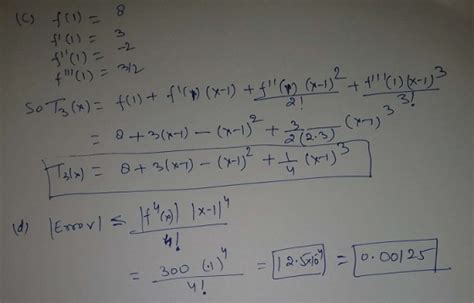 (c) f(1) = 8
f'(1) = 3
f''(1) = -2
f'''(1) = 3/2
So T₃(x) = f(1) + f'(1) (x-1) + f''(1) (x-1)²/2! + f'''(1)(x-1)³/3!
= 8 + 3(x-1) - (x-1)² + 3/2(2·3) (x-1)³
T₃(x) = 8 + 3(x-1) - (x-1)² + 1/4 (x-1)³
(d) |Error| ≤ |f⁴(x)| |x-1|⁴/4!
= 300 (.1)⁴/4! = 12.5x10⁻⁴ = 0.00125